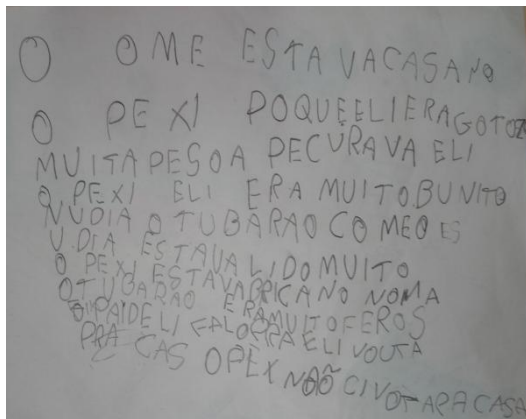 O OME ESTA VACASANO
O PEXI POQUEELIERAGOTOZO
MUITAPESOA PECURAVA ELI
O PEXI ELI ERA MUITO BUNITO
NUDIA O TUBARAO COMEO ES
U DIA ESTAVA LIDO MUITO
O PEXI ESTAVA BRICANO NOMA
OTUBARAO ERAMUITOFEROS
PAIDELI FALOPRA ELI VOUTA
PRA CAS OPEX NAÕ CIVOTAPACASA